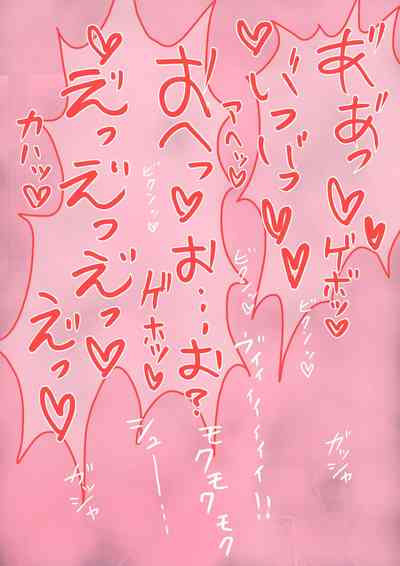 あ゙あ゙っ♥
ゲボッ♥
い゙つ゛じっ♥♥
アヘッ♥
おへっ♥お…お?
ゲホッ♥
え゙っえ゙っえ゙っ♥
え゙っ♡
カハッ♥
ビクンッ♡
ビクンッ♡
ビクンッ♡
ヴィイイイイイイ!!
モクモクモク
シュー…
ガッシャ
ガッシャ